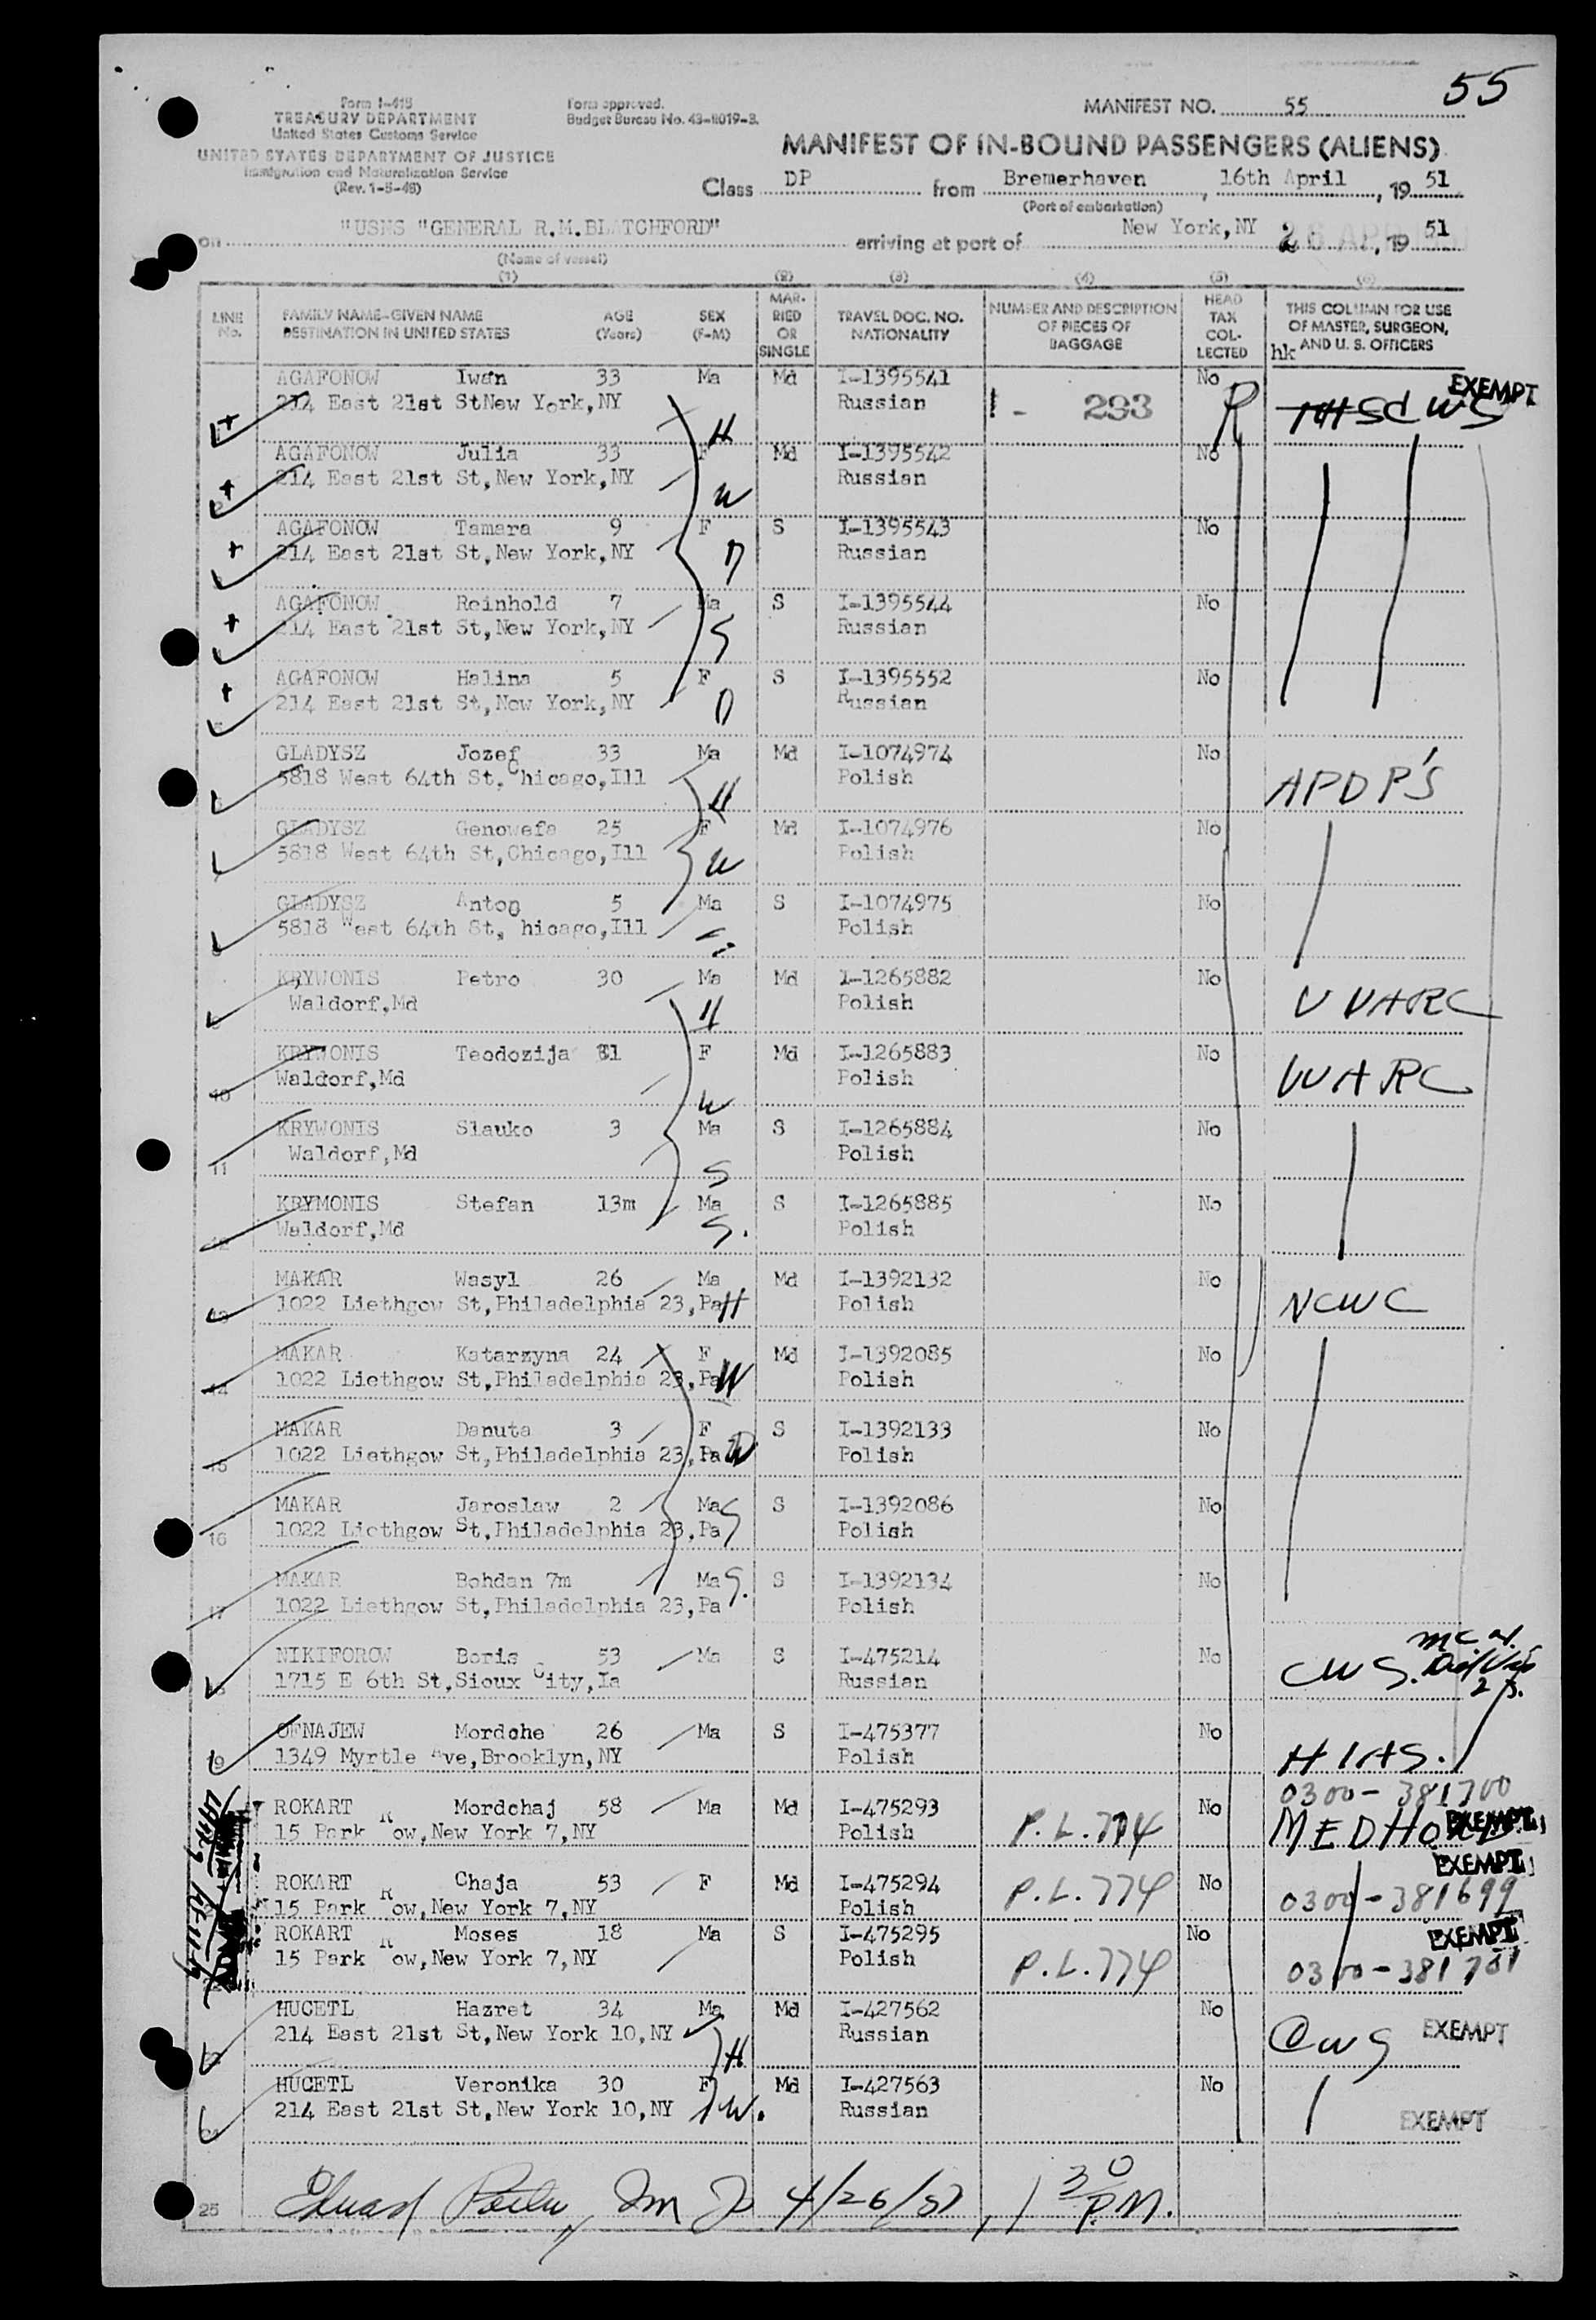 55
Form I-415
TREASURY DEPARTMENT
United States Customs Service
UNITED STATES DEPARTMENT OF JUSTICE
Immigration and Naturalization Service
(Rev. 1-5-48)
Form approved.
Budget Bureau No. 43-R019-3.
MANIFEST NO. 55
MANIFEST OF IN-BOUND PASSENGERS (ALIENS)
Class DP from Bremerhaven, 16th April, 19 51
(Port of embarkation)
on "USNS "GENERAL R.M.BLATCHFORD" arriving at port of New York,NY 26 APR, 19 51
(Name of vessel)
(1) (2) (3) (4) (5) (6)
LINE No. FAMILY NAME-GIVEN NAME DESTINATION IN UNITED STATES AGE (Years) SEX (F-M) MARRIED OR SINGLE TRAVEL DOC. NO. NATIONALITY NUMBER AND DESCRIPTION OF PIECES OF BAGGAGE HEAD TAX COLLECTED THIS COLUMN FOR USE OF MASTER, SURGEON, AND U. S. OFFICERS
hk
AGAFONOW Iwan 33 Ma Md I-1395541 No EXEMPT
214 East 21st StNew York,NY H Russian 1 - 293 R CWS
AGAFONOW Julia 33 F Md I-1395542 No
214 East 21st St,New York,NY W Russian
AGAFONOW Tamara 9 F S I-1395543 No
214 East 21st St,New York,NY D Russian
AGAFONOW Reinhold 7 Ma S I-1395544 No
214 East 21st St,New York,NY S Russian
AGAFONOW Halina 5 F S I-1395552 No
214 East 21st St,New York,NY D Russian
GLADYSZ Jozef 33 Ma Md I-1074974 No
5818 West 64th St,Chicago,Ill H Polish APDP'S
GLADYSZ Genowefa 25 F Md I-1074976 No
5818 West 64th St,Chicago,Ill W Polish
GLADYSZ Anton 5 Ma S I-1074975 No
5818 West 64th St, hicago,Ill S Polish
KRYWONIS Petro 30 Ma Md I-1265882 No
Waldorf,Md H Polish UUARC
10 KRYWONIS Teodozija 31 F Md I-1265883 No
Waldorf,Md W Polish UUARC
11 KRYWONIS Slauko 3 Ma S I-1265884 No
Waldorf,Md S Polish
12 KRYMONIS Stefan 13m Ma S I-1265885 No
Waldorf,Md S. Polish
13 MAKAR Wasyl 26 Ma Md I-1392132 No
1022 Liethgow St,Philadelphia 23,Pa H Polish NCWC
14 MAKAR Katarzyna 24 F Md I-1392085 No
1022 Liethgow St,Philadelphia 23,Pa W Polish
15 MAKAR Danuta 3 F S I-1392133 No
1022 Liethgow St,Philadelphia 23,Pa D Polish
16 MAKAR Jaroslaw 2 Ma S I-1392086 No
1022 Liethgow St,Philadelphia 23,Pa S Polish
17 MAKAR Bohdan 7m Ma S I-1392134 No
1022 Liethgow St,Philadelphia 23,Pa S. Polish
NIKIFOROW Boris 53 Ma S I-475214 No
1715 E 6th St,Sioux City,Ia Russian CWS.
19 OFNAJEW Mordche 26 Ma S I-475377 No
1349 Myrtle Ave,Brooklyn,NY Polish HIAS.
0300-381700
ROKART Mordchaj 58 Ma Md I-475293 No EXEMPT
15 Park Row,New York 7,NY Polish P.L.774 MED HOLD
ROKART Chaja 53 F Md I-475294 No EXEMPT
15 Park Row,New York 7,NY Polish P.L.774 0300-381699
ROKART Moses 18 Ma S I-475295 No EXEMPT
15 Park Row,New York 7,NY Polish P.L.774 0300-381701
HUCETL Hazret 34 Ma Md I-427562 No
214 East 21st St,New York 10,NY H Russian CWS EXEMPT
HUCETL Veronika 30 F Md I-427563 No
214 East 21st St,New York 10,NY W. Russian EXEMPT
25 4/26/51, 1 30 P.M.